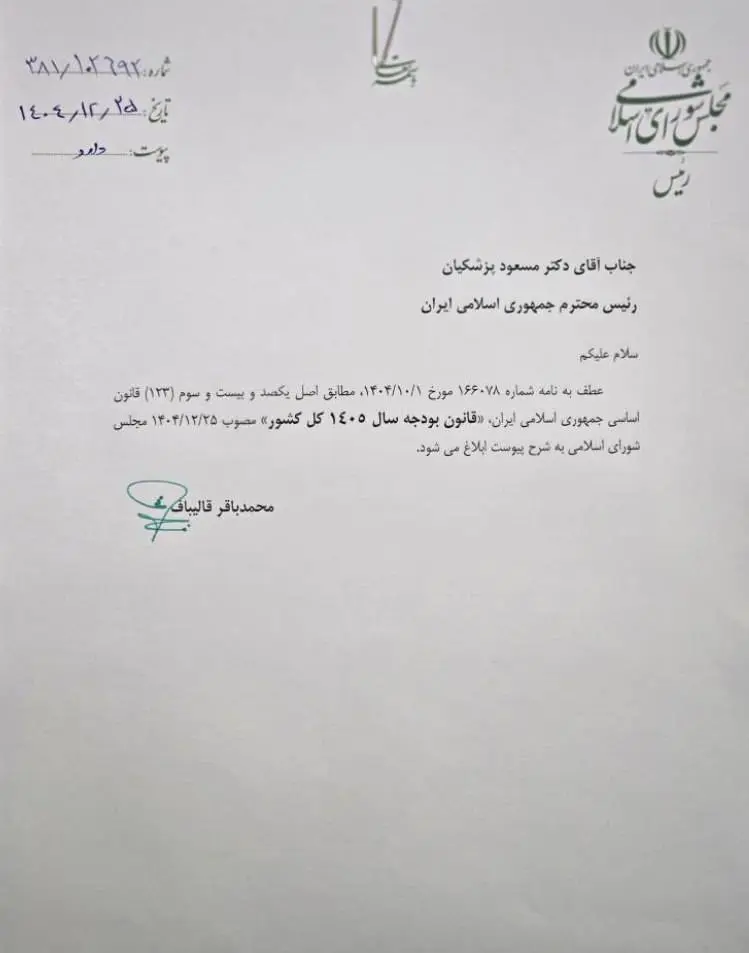 جمهوری اسلامی ایران
مجلس شورای اسلامی
رئیس
باسمه تعالی
شماره: ۳۸۱/۱۰۲۶۹۲
تاریخ: ۱۴۰۴/۱۲/۲۵
پیوست: دارد
جناب آقای دکتر مسعود پزشکیان
رئیس محترم جمهوری اسلامی ایران
سلام علیکم
عطف به نامه شماره ۱۶۶۰۷۸ مورخ ۱۴۰۴/۱۰/۱، مطابق اصل یکصد و بیست و سوم (۱۲۳) قانون
اساسی جمهوری اسلامی ایران، «قانون بودجه سال ۱۴۰۵ کل کشور» مصوب ۱۴۰۴/۱۲/۲۵ مجلس
شورای اسلامی به شرح پیوست ابلاغ می شود.
محمدباقر قالیباف